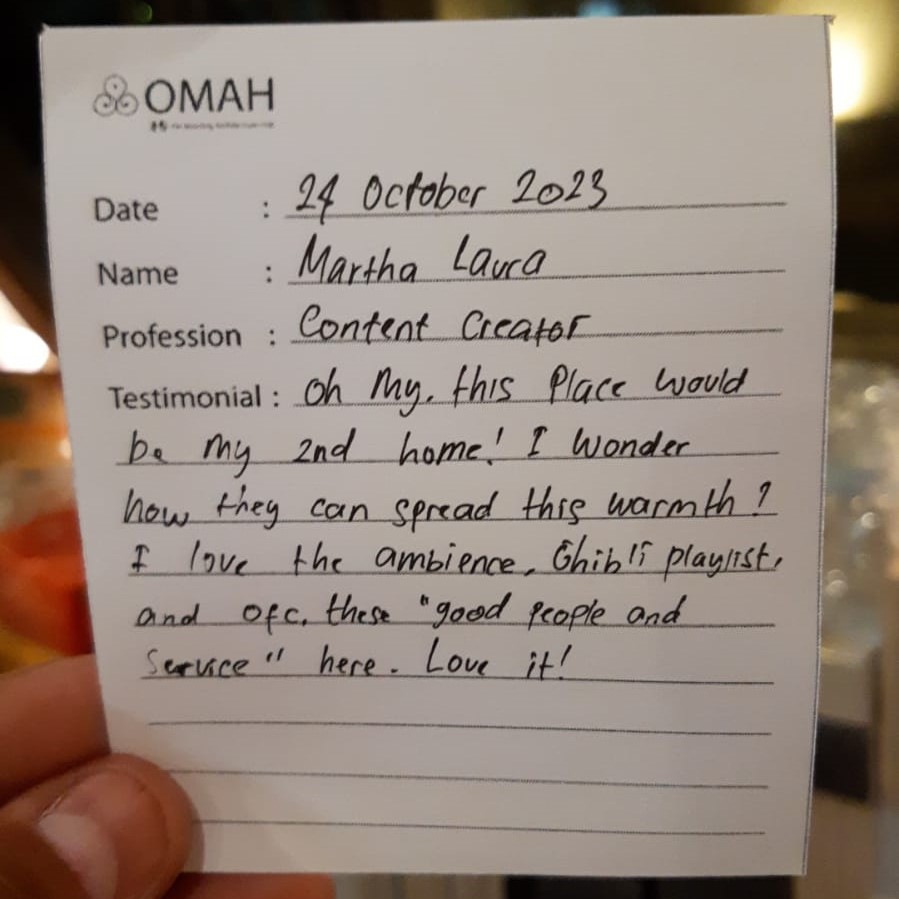 OMAH
Date : 24 October 2023
Name : Martha Laura
Profession : Content Creator
Testimonial : Oh My. this Place would
be my 2nd home! I Wonder
how they can spread this warmth?
I love the ambience, Ghibli playlist,
and ofc. these "good people and
Service" here. Love it!